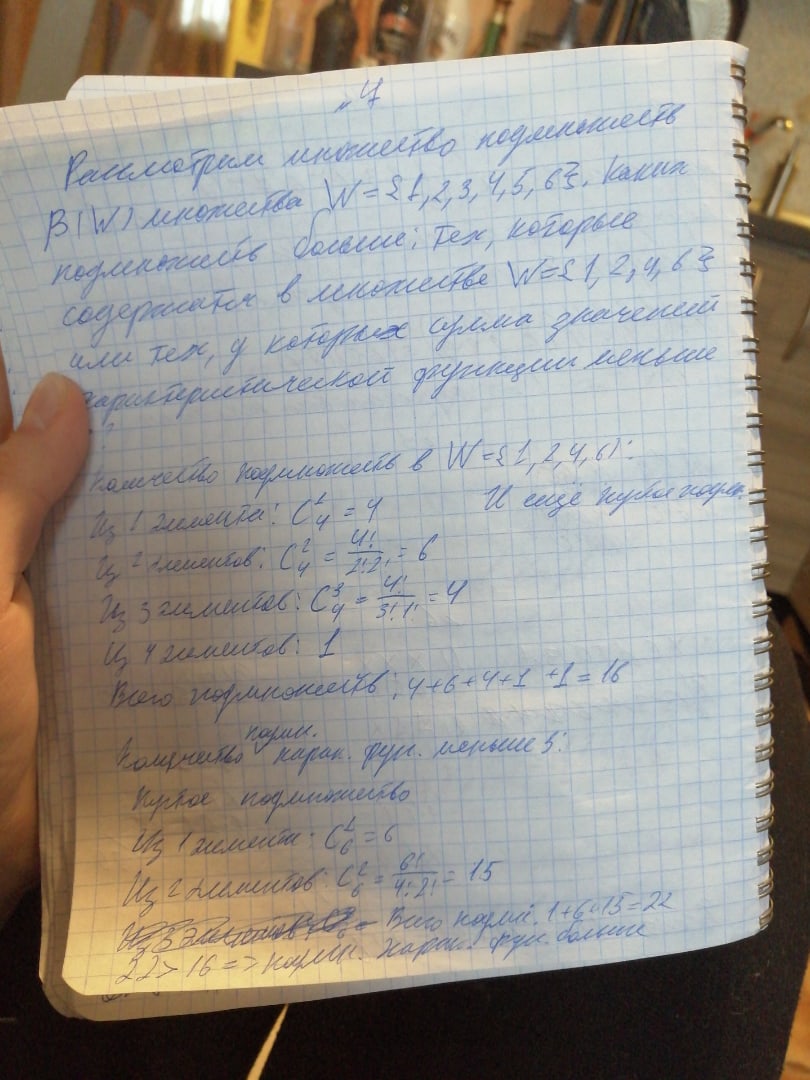 №4
Рассмотрим множество подмножеств
β(W) множества W={1,2,3,4,5,6}. Каких
подмножеств больше: тех, которые
содержатся в множестве W={1,2,4,6}
или тех, у которых сумма значений
характеристической функции меньше
?
Количество подмножеств в W={1,2,4,6}:
Из 1 элемента: C₄¹ = 4 И ещё пустое подмн.
Из 2 элементов: C₄² = 4!/2!2! = 6
Из 3 элементов: C₄³ = 4!/3!1! = 4
Из 4 элементов: 1
Всего подмножеств: 4+6+4+1+1=16
Количество подмн. харак. фун. меньше 3:
Пустое подмножество
Из 1 элемента: C₆¹ = 6
Из 2 элементов: C₆² = 6!/4!2! = 15
Всего подмн. 1+6+15=22
22>16 => подмн. харак. фун. больше